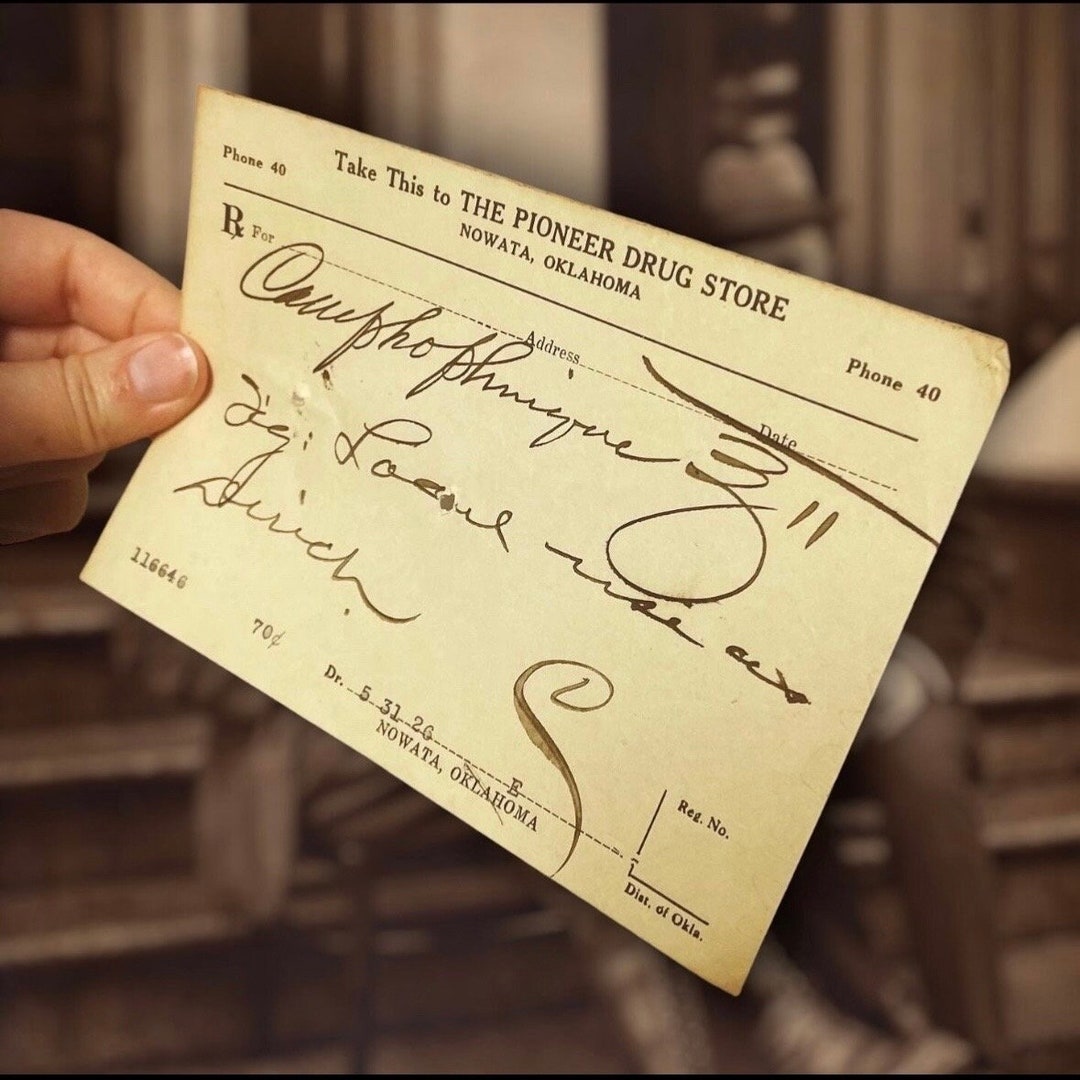 Phone 40 Take This to THE PIONEER DRUG STORE Phone 40
NOWATA, OKLAHOMA
Rx For
Address
Date
Campho phinique ℥ ''
Sig: Locail use as
Direct.
116646
70¢
Dr. 5 31 26 E
NOWATA, OKLAHOMA
Reg. No.
Dist. of Okla.